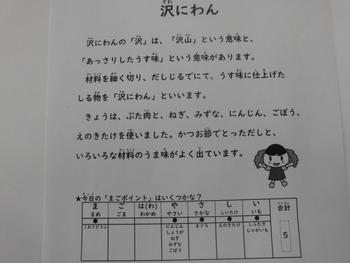 沢にわん
沢にわんの「沢」は、「沢山」という意味と、
「あっさりしたうす味」という意味があります。
材料を細く切り、だしじるでにて、うす味に仕上げた
しる物を「沢にわん」といいます。
きょうは、ぶた肉と、ねぎ、みずな、にんじん、ごぼう、
えのきたけを使いました。かつお節でとっただしと、
いろいろな材料のうま味がよく出ています。
★今日の「まごポイント」はいくつかな?
ま ご は(わ) や さ し い 合計
まめ ごま わかめ やさい さかな しいたけ いも
● ● ● ● ● 5
にんじん まぐろ えのきたけ しらたき
しょうが じゃがいも
ねぎ
みずな
ごぼう